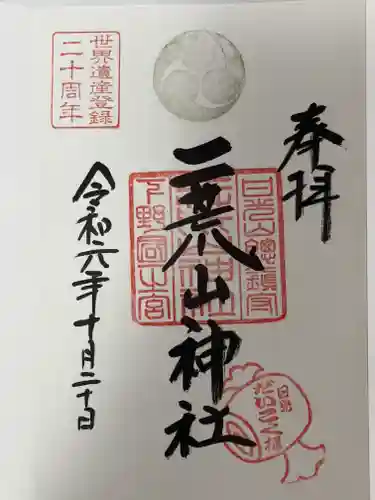 奉拝
二荒山神社
令和六年十月二十日
世界遺産登録
二十周年
日光山總鎮守
下野國一宮
日光
だいこく様